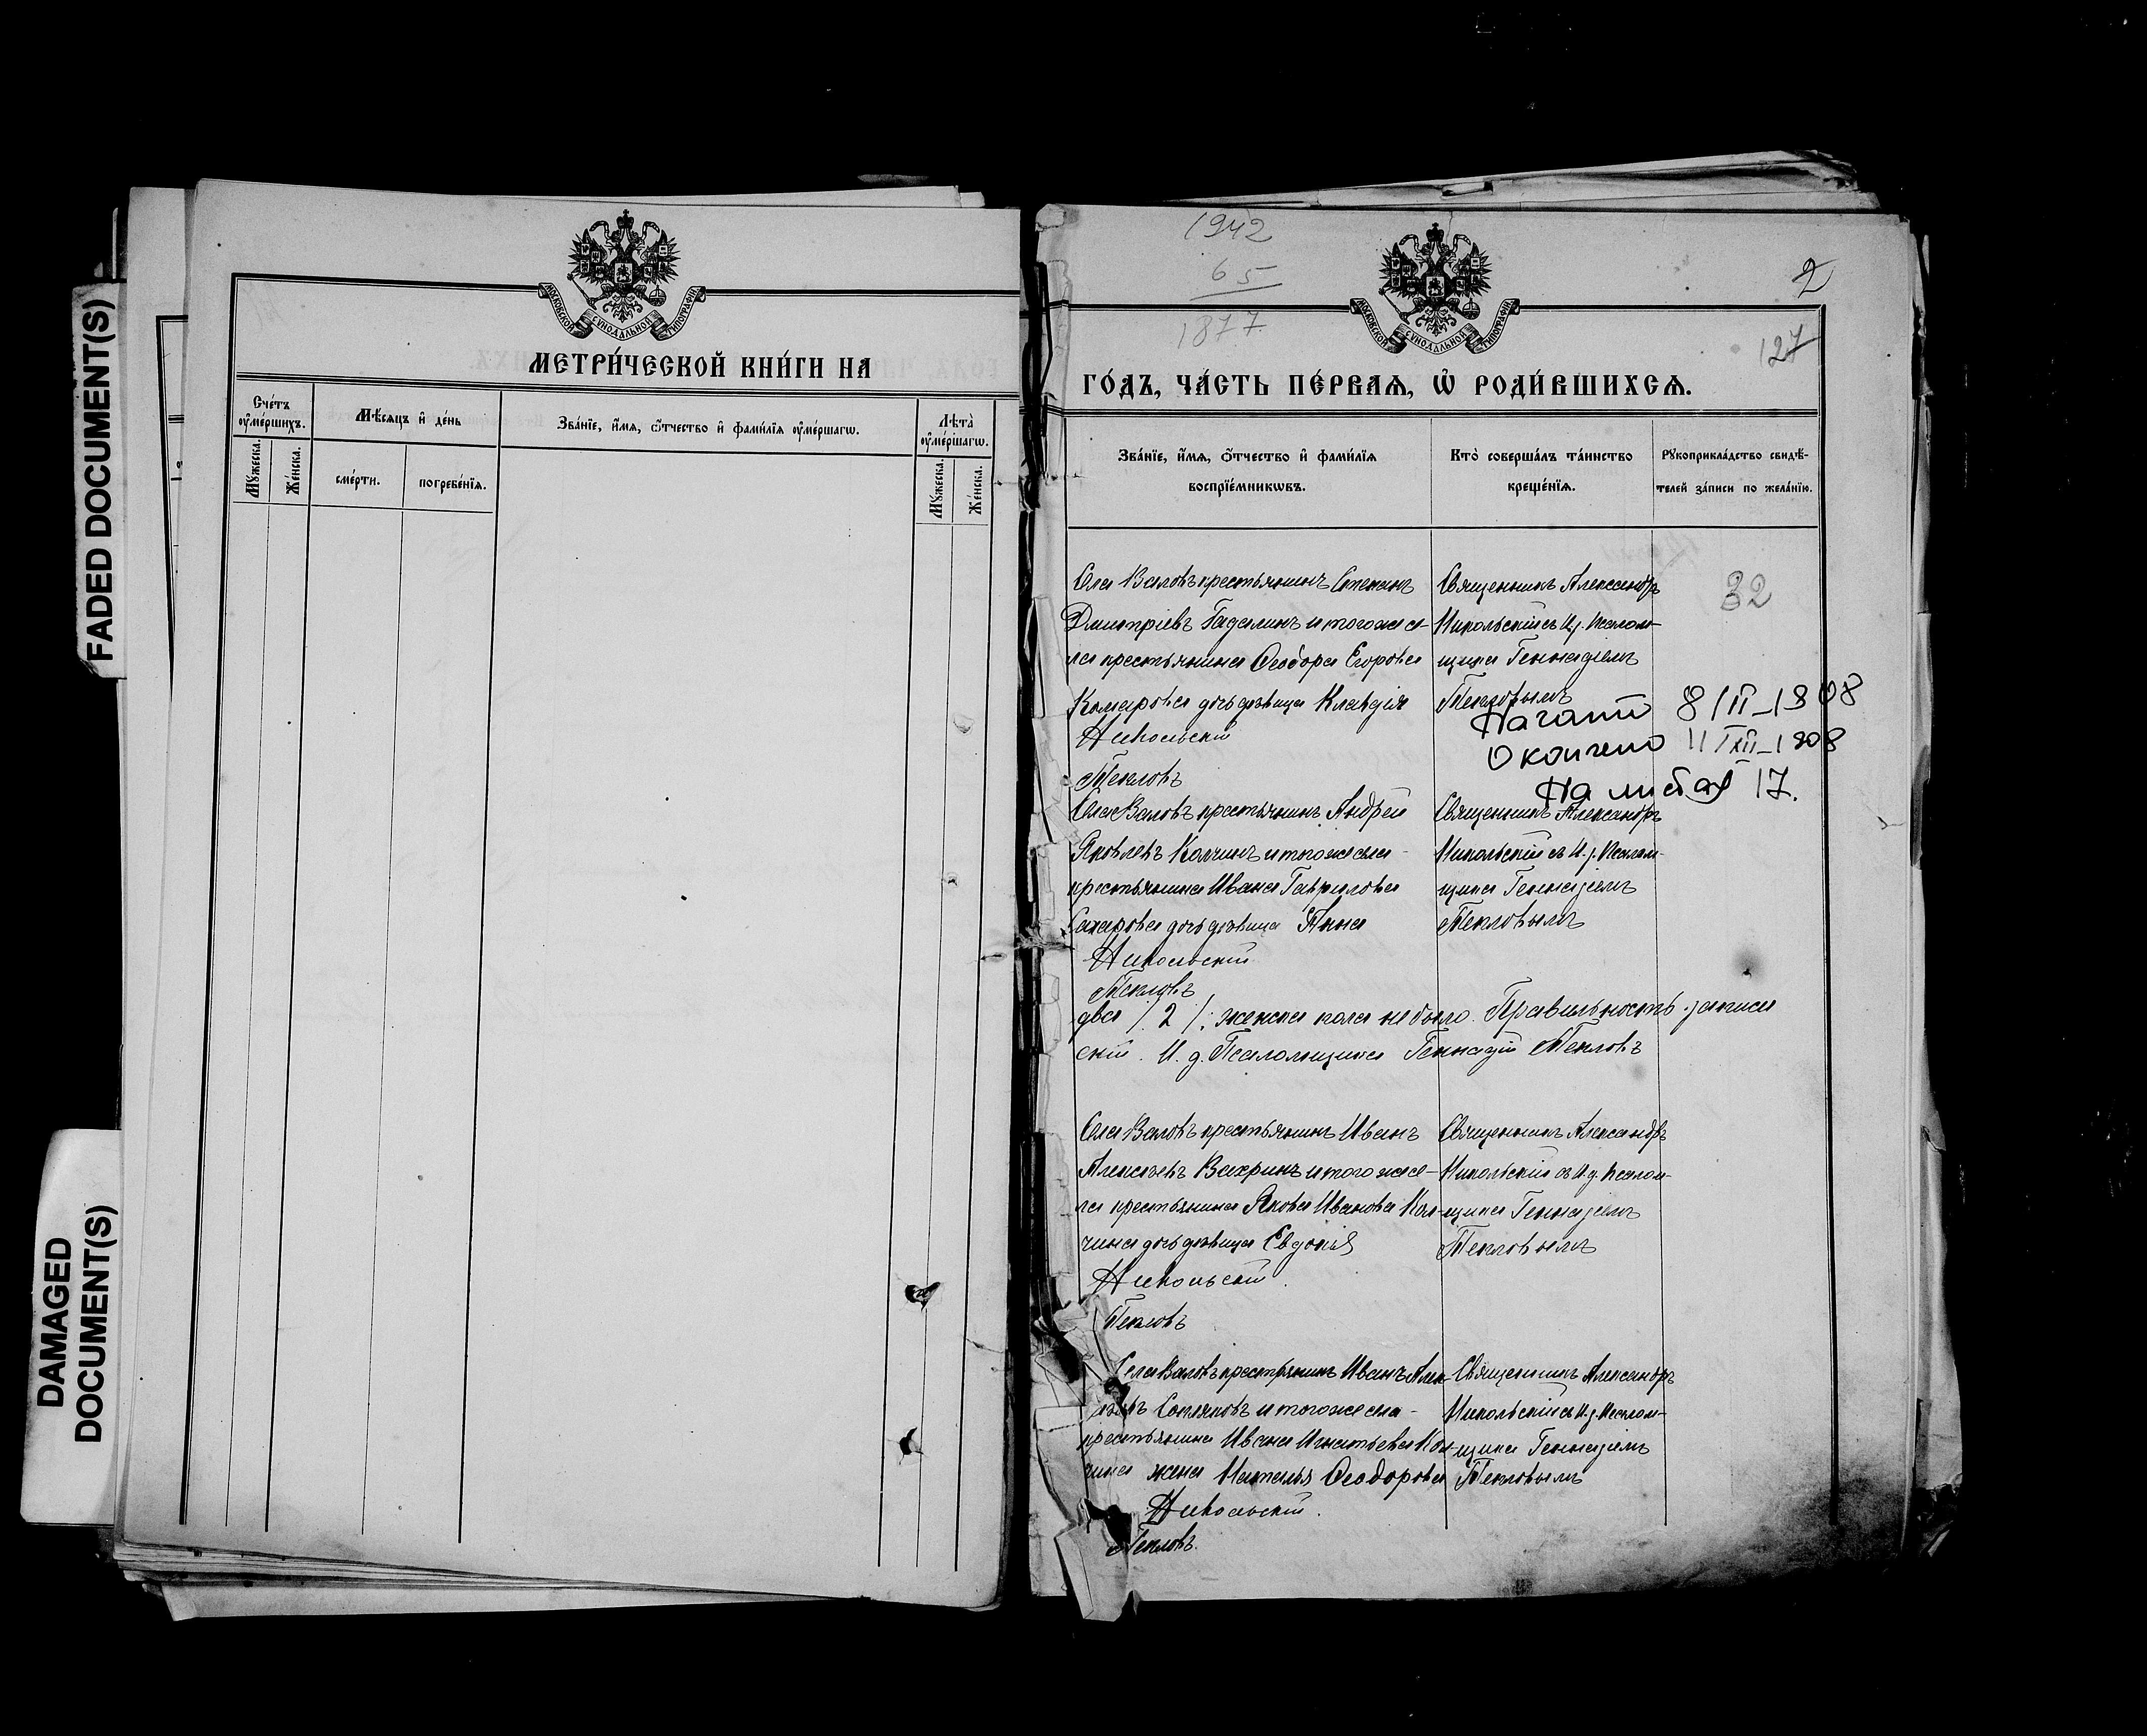 FADED DOCUMENT(S)
DAMAGED
DOCUMENT(S)
МОСКОВСКОЙ СѴНОДАЛЬНОЙ ТИПОГРАФІИ
МЕТРИ́ЧЕСКОЙ КНИ́ГИ НА
Сче́тъ
оу҆ме́ршихъ.
Мꙋ́жеска.
Же́нска.
Мѣ́сяцъ и҆ де́нь
сме́рти.
погребе́нїя.
Зва́нїе, и҆́мя, ѻ҆́тчество и҆ фами́лїя оу҆ме́ршагѡ.
Лѣ́та
оу҆ме́ршагѡ.
Мꙋ́жеска.
Же́нска.
1942
65
1877
МОСКОВСКОЙ СѴНОДАЛЬНОЙ ТИПОГРАФІИ
2
127
ГО́ДЪ, ЧА́СТЬ ПЕ́РВАЯ, Ѡ҆ РОДИ́ВШИХСЯ.
Зва́нїе, и҆́мя, ѻ҆́тчество и҆ фами́лїя
воспрїе́мникѡвъ.
Кто̀ соверша́лъ та́инство
креще́нїя.
Рꙋкоприкла́дство свидѣ́-
телей за́писи по жела́нїю.
Села Валовъ крестьянинъ Степанъ
Дмитріевъ Гадалинъ и того же се-
ла крестьянина Ѳеодора Егорова
Комарова дочь дѣвица Клавдія
Никольскій
Тепловъ
Священникъ Александръ
Никольскій съ И. д. псалом-
щика Геннадіемъ
Тепловымъ
32
Начато 8/II-1908
Окончено 11/XII-1908
На листах 17.
Села Валовъ крестьянинъ Андрей
Яковлевъ Колчинъ и того же села
крестьянина Ивана Гаврилова
Сахарова дочь дѣвица Анна
Никольскій
Тепловъ
Священникъ Александръ
Никольскій съ И. д. псалом-
щика Геннадіемъ
Тепловымъ
два /2/; женска пола не было. Правильность записи
скій. И. д. Псаломщика Геннадій Теплов
Села Валовъ крестьянинъ Иванъ
Алексѣевъ Вахринъ и того же се-
ла крестьянина Якова Иванова Кол-
чина дочь дѣвица Евдокія
Никольскій.
Теплов
Священникъ Александръ
Никольскій съ И. д. псалом-
щика Геннадіемъ
Тепловымъ
Села Валовъ крестьянинъ Иванъ Алек-
и того же села
крестьянина Ивана Игнатьева Кол-
чина жена Наталья Ѳеодорова
Никольскій.
Теплов.
Священникъ Александръ
Никольскій съ И. д. псалом-
щика Геннадіемъ
Тепловымъ